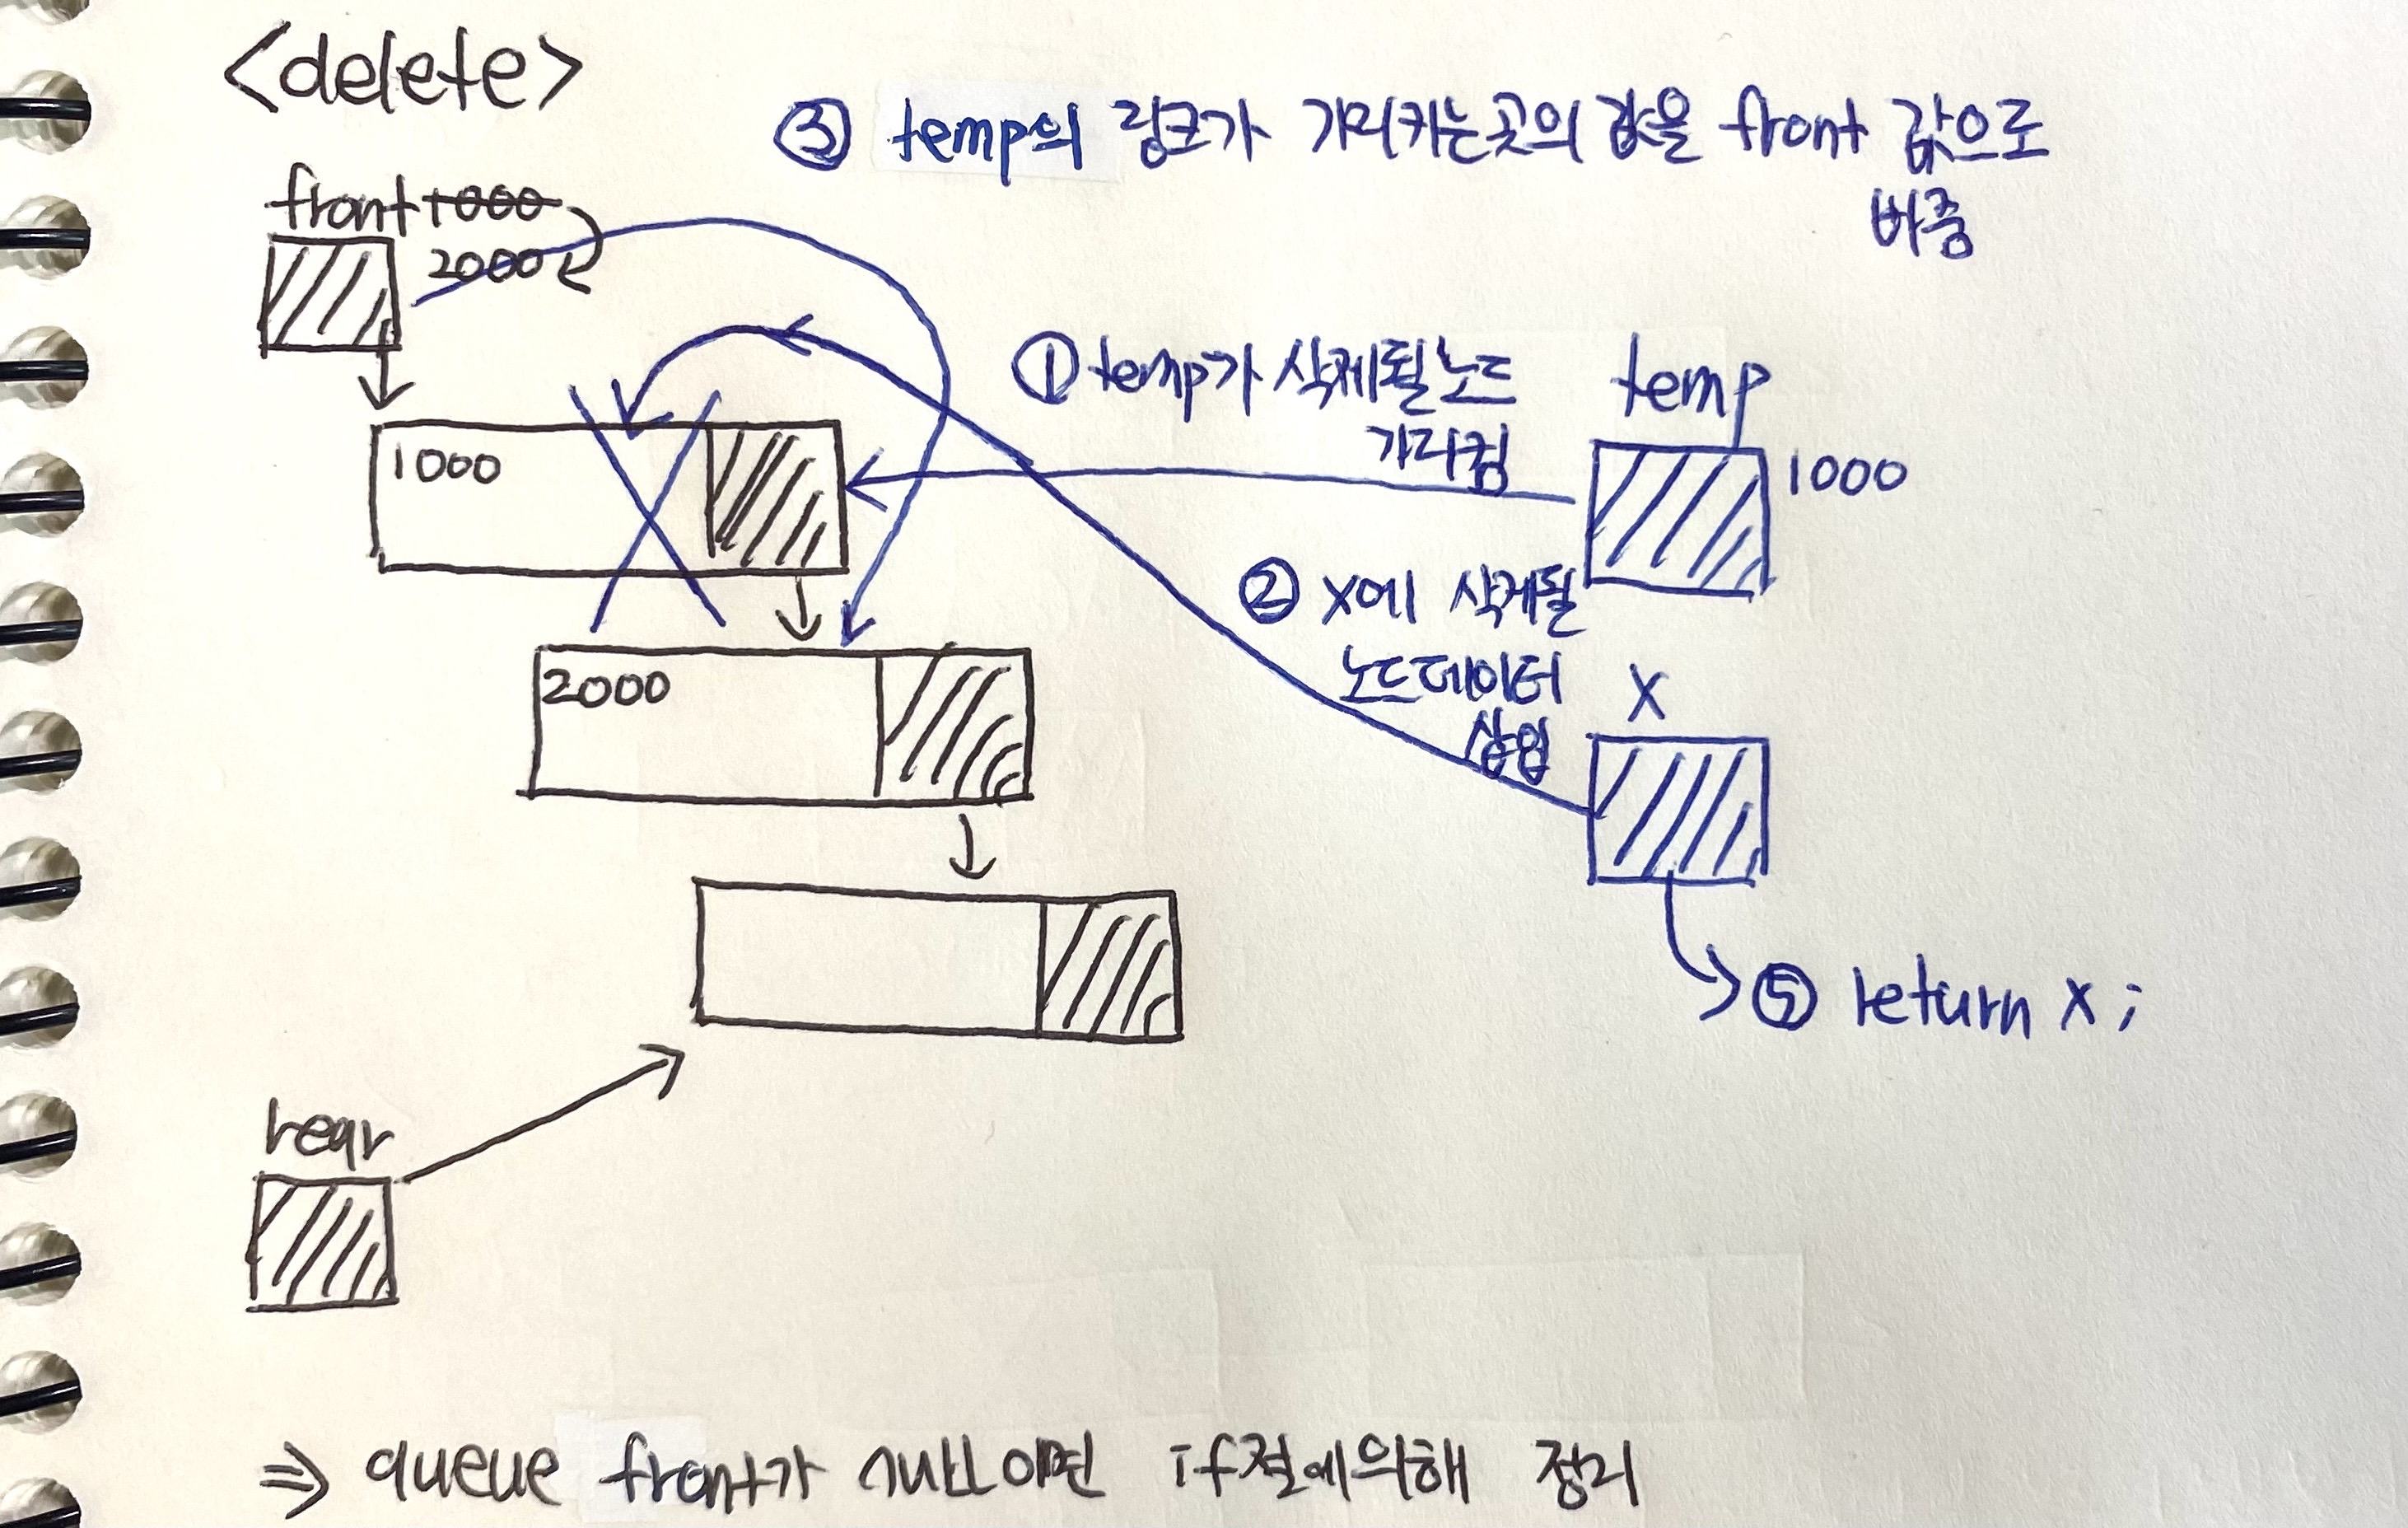 <delete>
③ temp의 링크가 가리키는곳의 값을 front 값으로
바꿈
front 1000
2000
① temp가 삭제될노드
가리킴
temp
1000
1000
② x에 삭제될
노드데이터
삽입
x
2000
⑤ return x;
rear
⇒ queue front가 null이면 if절에의해 정리